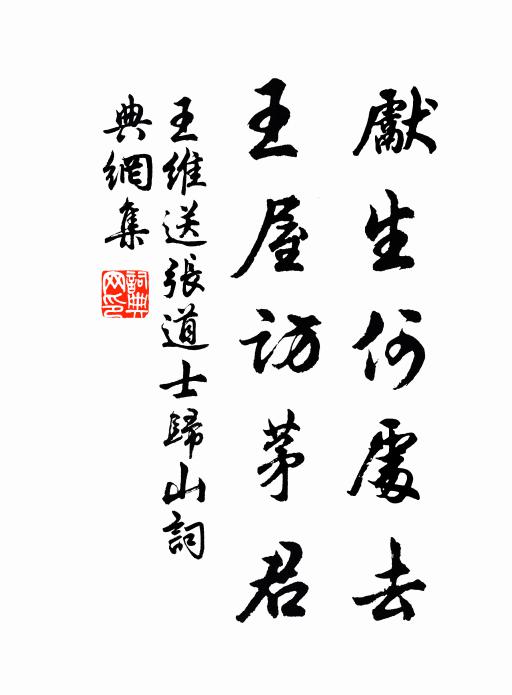 獻生何處去
王屋訪茅君
王維送張道士歸山詞
典網集
詞典
网印